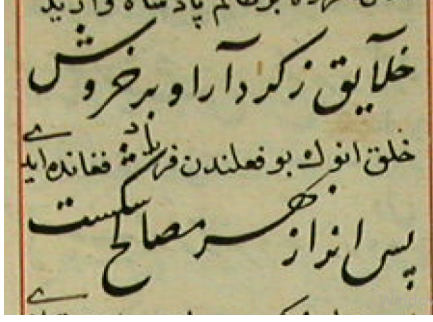 پادشاه
خلآیق ز کردآر او بر خروش
خلق انوك بو فعلندن فریاد فغانده ایدی
پس انرا ز بهر مصالح شکست